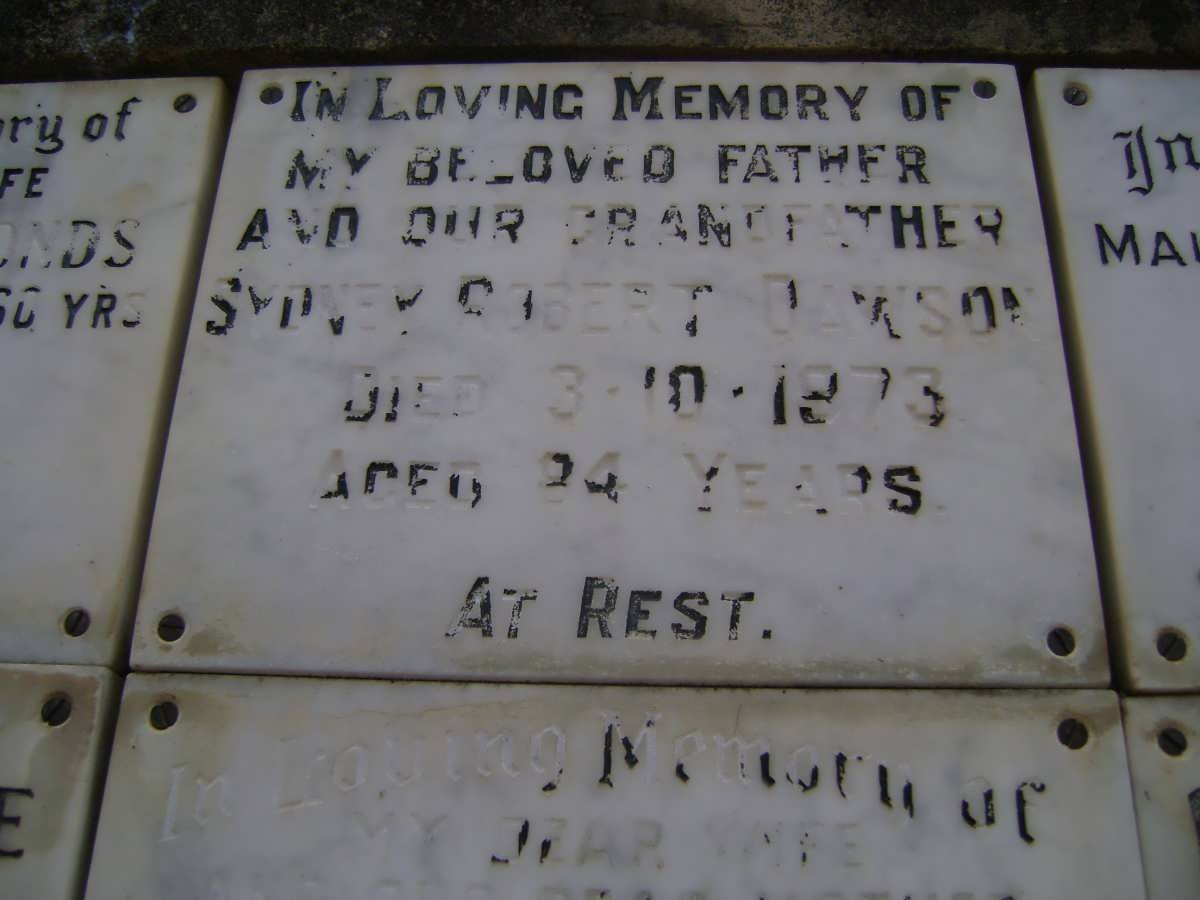 ory of
FE
ONDS
60 YRS
IN LOVING MEMORY OF
MY BELOVED FATHER
AND OUR GRANDFATHER
SYDNEY ROBERT DAWSON
DIED 3·10·1973
AGED 94 YEARS.
AT REST.
In
MAU
E
In Loving Memory of
MY DEAR WIFE
AND OUR DEAR MOTHER